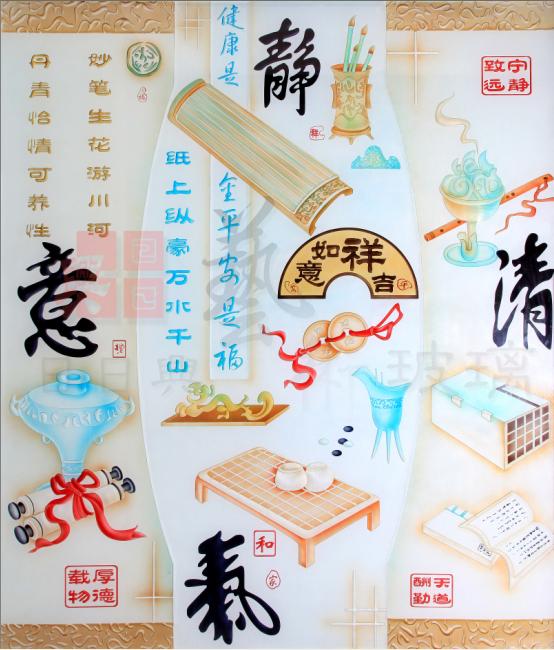 妙笔生花游川河
丹青怡情可养性
健康是金平安是福
纸上纵豪万水千山
静
清
意
氣
藝
宁静致远
如意吉祥
厚德载物
天道酬勤
和
祥
玻璃